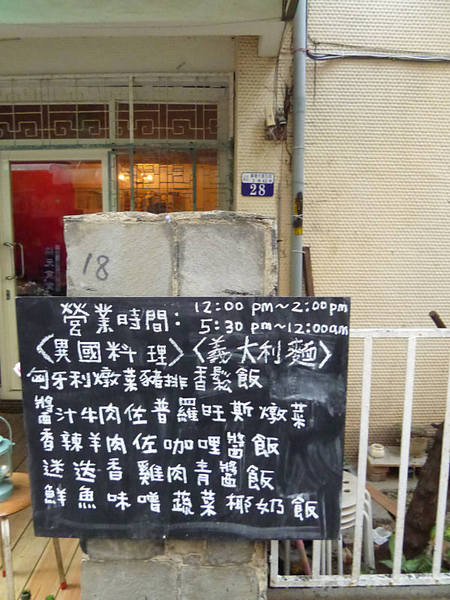 28
18
營業時間: 12:00 pm~2:00pm
5:30 pm~12:00am
〈異國料理〉〈義大利麵〉
匈牙利燉菜豬排香鬆飯
醬汁牛肉佐普羅旺斯燉菜
香辣羊肉佐咖哩醬飯
迷迭香雞肉青醬飯
鮮魚味噌蔬菜椰奶飯